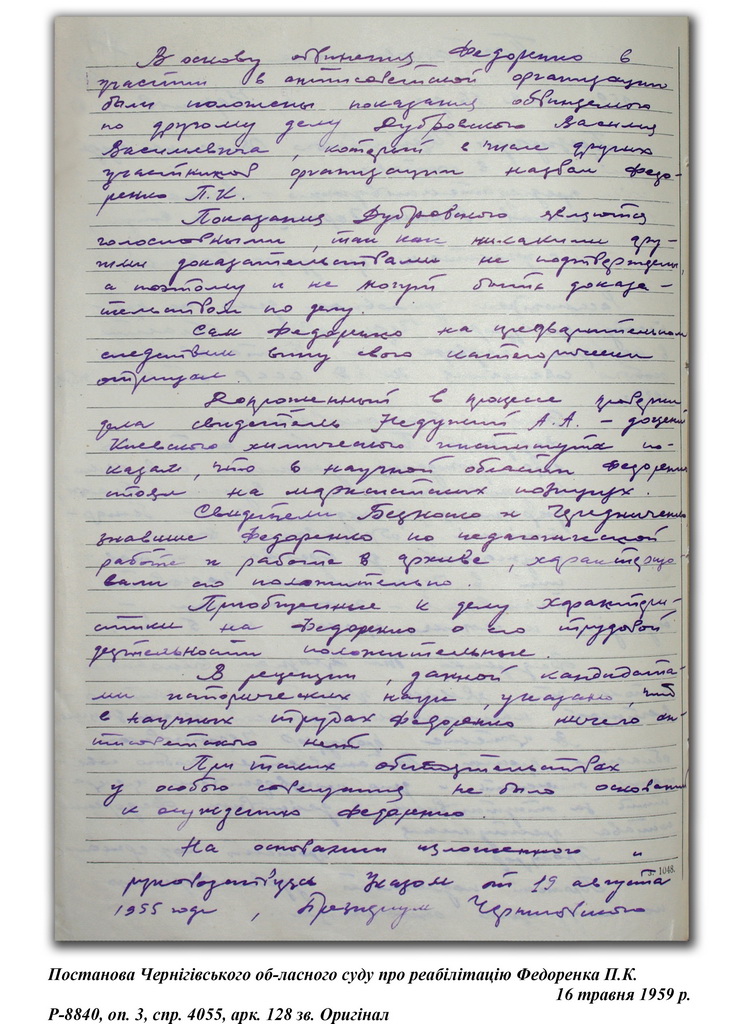 В основу обвинения Федоренко в
участии в антисоветской организации
были положены показания обвиняемого
по другому делу Дубровского Василия
Васильевича, который в числе других
участников организации назвал Федо-
ренко П.К.
Показания Дубровского являются
голословными, так как никакими дру-
гими доказательствами не подтверждены,
а поэтому и не могут быть доказа-
тельством по делу.
Сам Федоренко на предварительном
следствии вину свою категорически
отрицал.
Допрошенный в процессе проверки
дела свидетель Недужий А.А. – доцент
Киевского химического института по-
казал, что в научной области Федоренко
стоял на марксистских позициях.
Свидетели и Чередниченко
знавшие Федоренко по педагогической
работе и работе в архиве, характеризо-
вали его положительно.
Приобщенные к делу характери-
стики на Федоренко о его трудовой
деятельности положительные.
В рецензии, данной кандидата-
ми исторических наук, указано, что
в научных трудах Федоренко ничего ан-
тисоветского нет.
При таких обстоятельствах
у особого совещания не было оснований
к осуждению Федоренко.
На основании изложенного и
руководствуясь Указом от 19 августа
1955 года, Президиум Черниговского
1048.
Постанова Чернігівського об-ласного суду про реабілітацію Федоренка П.К.
16 травня 1959 р.
Р-8840, оп. 3, спр. 4055, арк. 128 зв. Оригінал